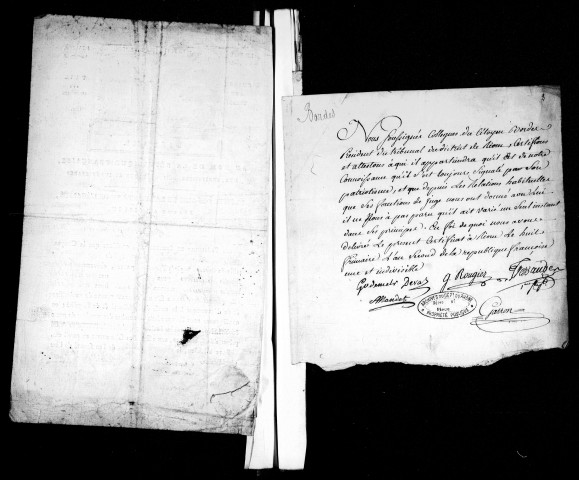 Nous soussignés Collegues du Citoyen
President du tribunal du district de Riom Certifions
et attestons à qui il appartiendra qu'il est de notre
Connoissance qu'il s'est toujours signalé par son
patriotisme, et que depuis Les Relations habituelles
que ses fonctions de Juge nous ont donné avec lui
il ne nous à pas paru qu'il ait varié un seul instant
dans ses principes. En foi de quoi nous avons
delivré Le present Certificat à Riom Le huit
frimaire L'an Second de la republique francoise
une et indivisible
Deval g Rougier
Mandet
Garron
PROPRIÉTÉ PUBLIQUE